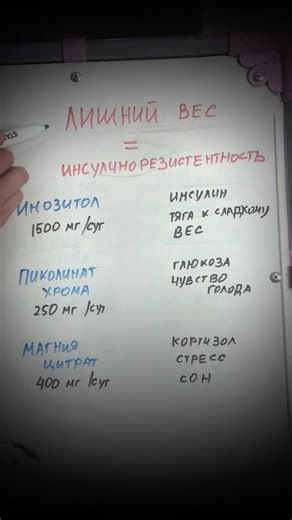 ЛИШНИЙ ВЕС
=
ИНСУЛИНОРЕЗИСТЕНТНОСТЬ
ИНОЗИТОЛ
1500 мг/сут
ИНСУЛИН
ТЯГА К СЛАДКОМУ
ВЕС
ПИКОЛИНАТ
ХРОМА
250 мг/сут
ГЛЮКОЗА
ЧУВСТВО
ГОЛОДА
МАГНИЯ
ЦИТРАТ
400 мг/сут
КОРТИЗОЛ
СТРЕСС
СОН